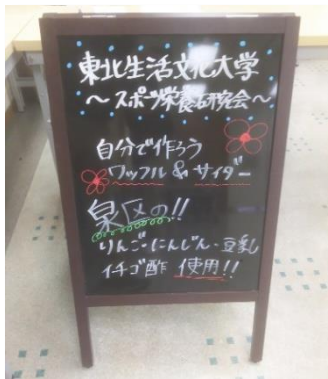 東北生活文化大学
～スポーツ栄養研究会～
自分で作ろう
ワッフル & サイダー
泉区の!!
りんご・にんじん・豆乳
イチゴ酢 使用!!